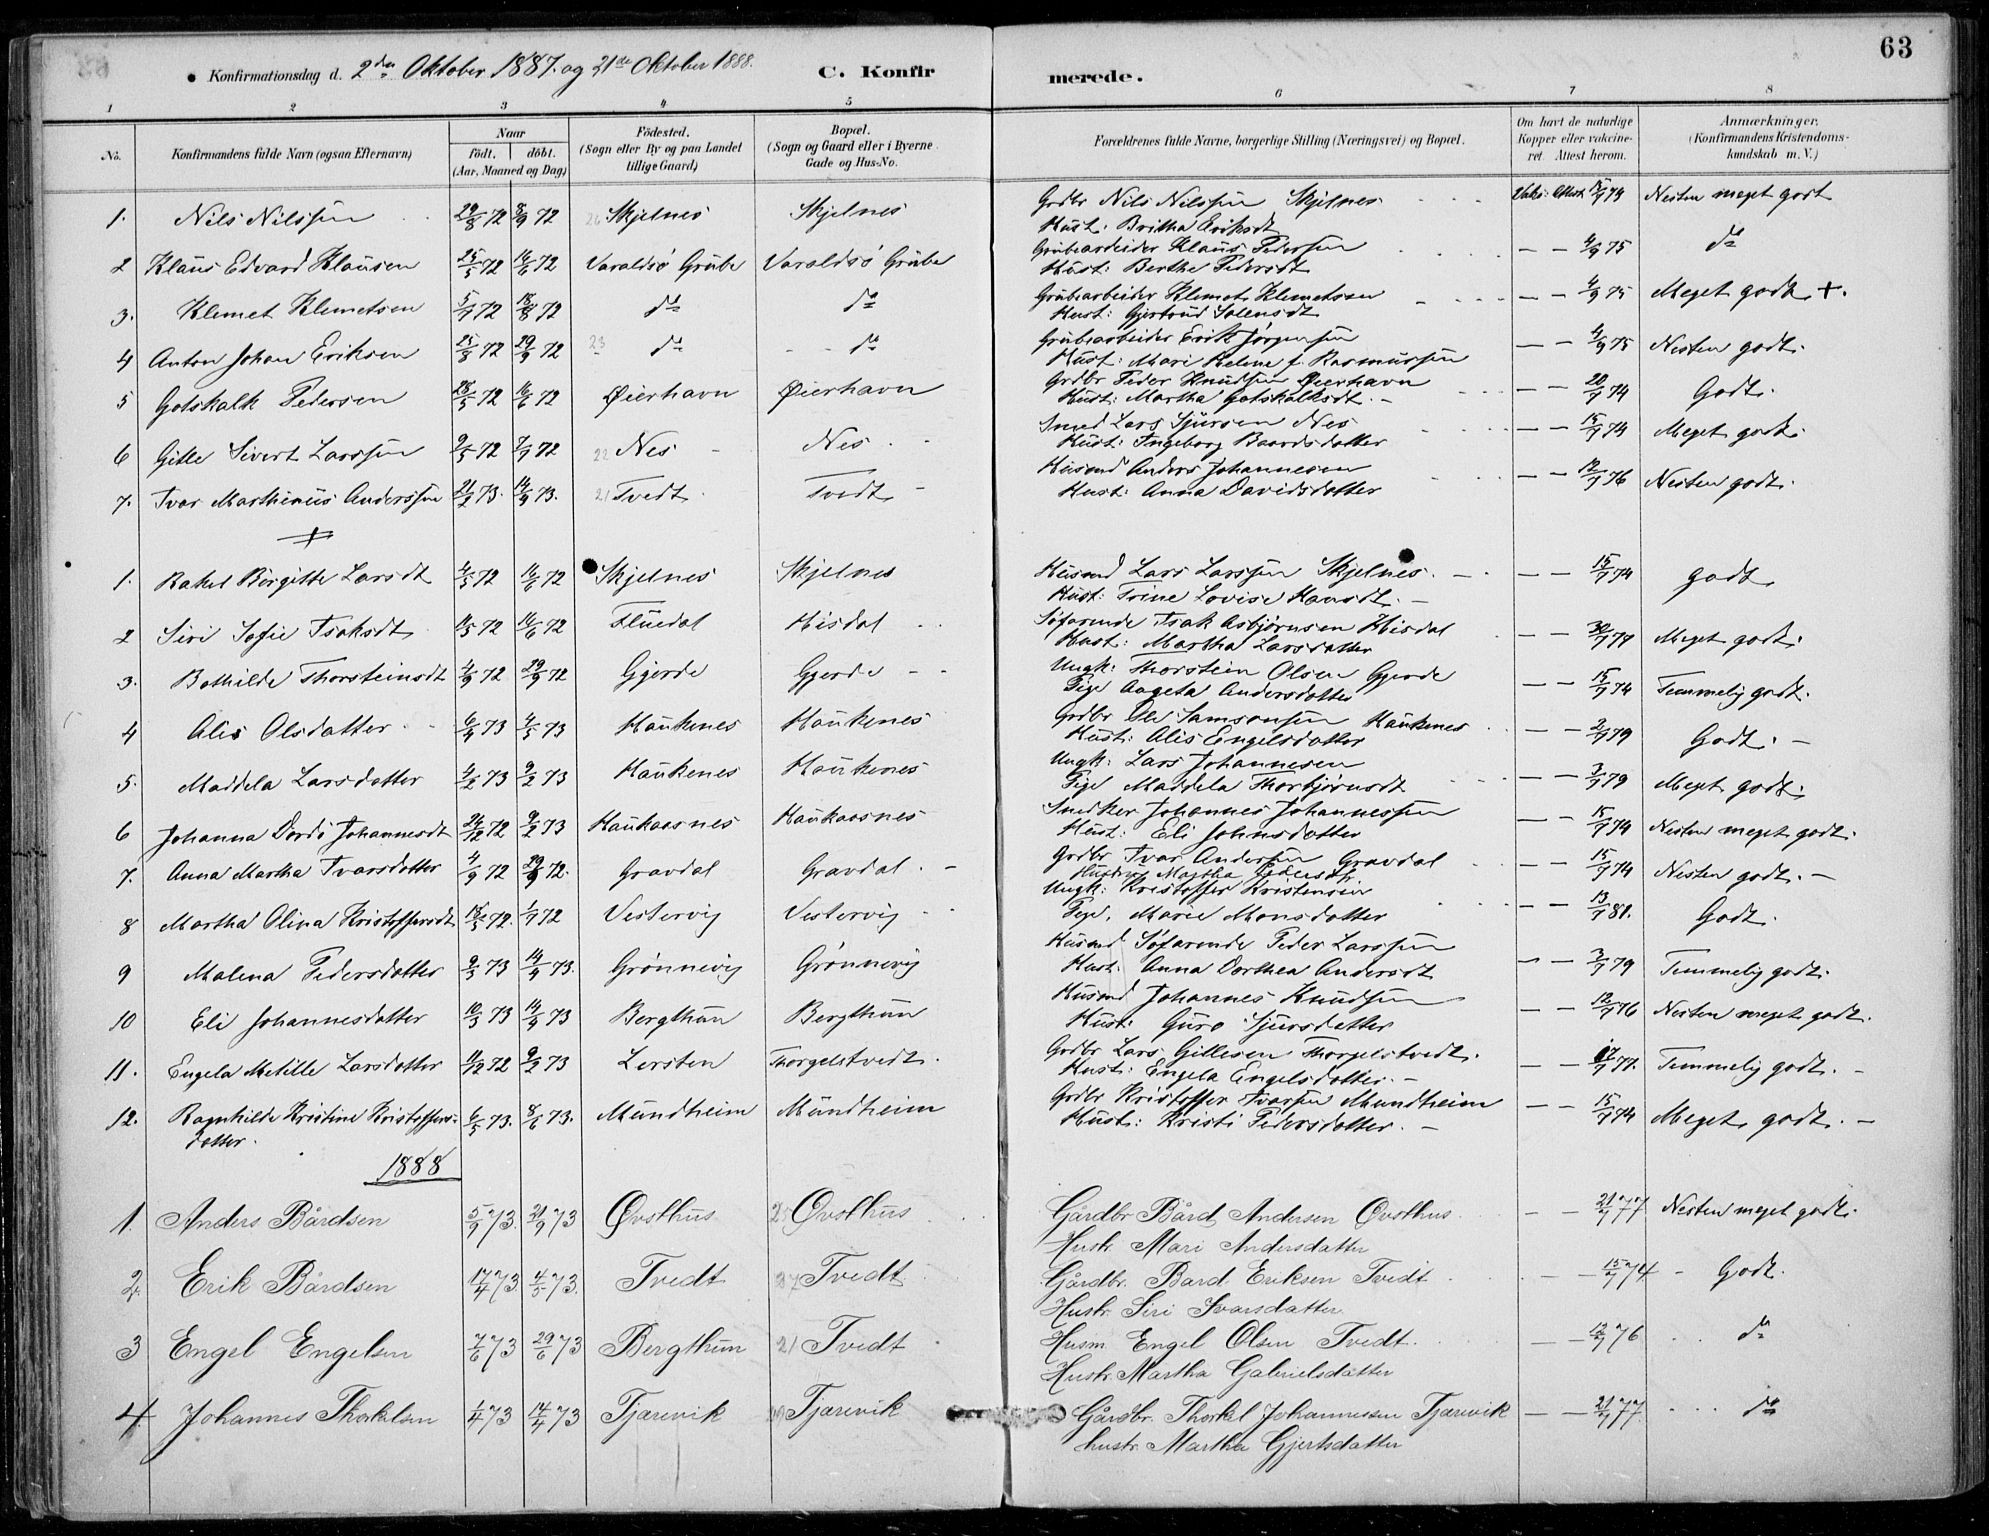 63
Konfirmationsdag d. 2den Oktober 1887. og 21de Oktober 1888. C. Konfirmerede.
1 2 3 4 5 6 7 8
No. Konfirmandens fulde Navn (ogsaa Efternavn) Naar födt. döbt. (Aar, Maaned og Dag) Födested. (Sogn eller By og paa Landet tillige Gaard) Bopæl. (Sogn og Gaard eller i Byerne Gade og Hus-No. Forældrenes fulde Navne, borgerlige Stilling (Næringsvei) og Bopæl. Om havt de naturlige Kopper eller vakcineret. Attest herom. Anmærkninger. (Konfirmandens Kristendomskundskab m. V.)
1. Nils Nilssön 29/8 72 8/9 72 Skjelnes Skjelnes Grdbr Nils Nilssön Skjelnes 15/9 74 Nesten meget godt
Hust. Britha Eriksdt
2 Klaus Edvard Klausen 25/5 72 16/6 72 Varaldsö Grube Varaldsö Grube Grubearbeider Klaus Pederssen — — 4/9 75 do
Hust: Berthe Pedersdt
3. Klemet Klemetsen 5/7 72 18/8 72 do do Grubearbeider Klemet Klemetssen — — 4/9 75 Meget godt +.
Hust: Gjertrud
4 Anton Johan Eriksen 25/8 72 29/9 72 23 do do Grubearbeider Erik Jörgensen — — 4/9 75 Nesten godt.
Hust: Mari Helene f. Rasmussen
5 Gotskalk Pedersen 28/5 72 16/6 72 Øierhavn Øierhavn Grdbr Peder Knudsen Øierhavn — — 20/9 74 Godt.
Hust: Martha Gotskalksdt. —
6 Gitle Sivert Larssen 9/5 72 7/7 72 22 Nes Nes Smed Lars Sjursen Nes — — 15/9 74 Meget godt.
Hust: Ingeborg Baardsdatter
7. Ivar Marthinius Anderssen 21/2 73. 14/9 73. 21 Tvedt Tvedt Husmd Anders Johannesen — — 12/9 76 Nesten godt.
Hust: Anna Davidsdatter
1. Rakel Börgitte Larsdt 4/5 72 16/6 72 Skjelnes Skjelnes Husmd Lars Larssen Skjelnes. — — 15/7 74 godt
Hust: Trine Lovise Hansdt. —
2 Siri Sofie Isaksdt 11/5 72 16/6 72 Fluedal Hisdal Söfarende Isak Asbjörnsen Hisdal — — 30/7 77 Meget godt.
Hust: Martha Larsdatter
3. Bothilde Thorsteinsdt 4/9 72 29/9 72 Gjerde Gjerde Ungk: Thorstein Olsen Gjerde — — 15/7 74 Temmelig godt.
Pige Aageta Andersdatter
4 Alis Olsdatter 6/4 73 4/5 73 Haukenes Haukenes Grdbr Ole Samsonsen Haukenes — — 2/7 79 Godt. —
Hust: Alis Engelsdatter
5. Maddela Larsdatter 4/2 73 9/2 73 Haukenes Haukenes Ungk: Lars Johannesen — — 3/7 79 Meget godt.
Pige Maddela Thorbjörnsdt
6 Johanna Dordi Johannesdt 24/12 72 9/2 73 Haukaasnes Haukaasnes Snedker Johannes Johannessen — — 15/7 74 Nesten meget godt.
Hust: Eli Johnsdatter
7. Anna Martha Ivarsdatter 4/9 72 29/9 72. Gravdal Gravdal. — Grdbr Ivar Andersen Gravdal — — 15/7 74 Nesten godt. —
Hustru Martha Pedersdtr
8 Martha Olina Kristoffersdt 15/5 72. 1/7 72 Vestervig Vestervig Ungk: Kristoffer Kristensen — — 13/7 81. Godt.
Pige. Marie Monsdatter
9 Malena Pedersdatter 9/3 73 14/4 73. Grönnevig Grönnevig Husmd Söfarende Peder Larssen — — 3/7 79 Temmelig godt.
Hust: Anna Dorthea Andersdt
10 Eli Johannesdatter 10/3 73 14/4 73 Bergthun Bergthun Husmd Johannes Knudsen — — 12/7 76 Nesten meget godt.
Hust: Guro Sjursdatter
11. Engela Metille Larsdatter 11/12 72 9/2 73 Lersten Thorgelstvedt. Grdbr Lars Gillesen Thorgelstvedt. — — 17/7 77. Temmelig godt. —
Hust: Engela Engelsdatter. —
12. Ragnhilde Kristine Kristoffers- 6/5 73. 8/6 73. Mundheim Mundheim Grdbr Kristoffer Ivarsen Mundheim — — 15/7 74 Meget godt. —
datter. Hust: Kristi Pedersdatter. —
1888
1. Anders Bårdsen 5/9 73. 21/9 73 Øvsthus Øvsthus Gårdbr Bård Andersen Øvsthus — — 21/7 77 Nesten meget godt.
Hustr Mari Andersdatter
2. Erik Bårdsen 17/4 73. 4/5 73. Tvedt 37 Tvedt Gårdbr. Bard Eriksen Tvedt — — 15/7 74 — Godt.
Hustr. Siri Ivarsdatter
3 Engel Engelsen 7/6 73 29/6 73 Bergthun 21 Tvedt Husm Engel Olsen Tvedt. — — 12/7 76 do
Hustr. Martha Gabrielsdatter
4 Johannes Thorkelsen 1/4 73 14/4 73 Tjærevik Tjærevik Gårdbr. Thorkel Johannessen Tjærevik — — 21/7 77 do
hustr. Martha Gjertsdatter